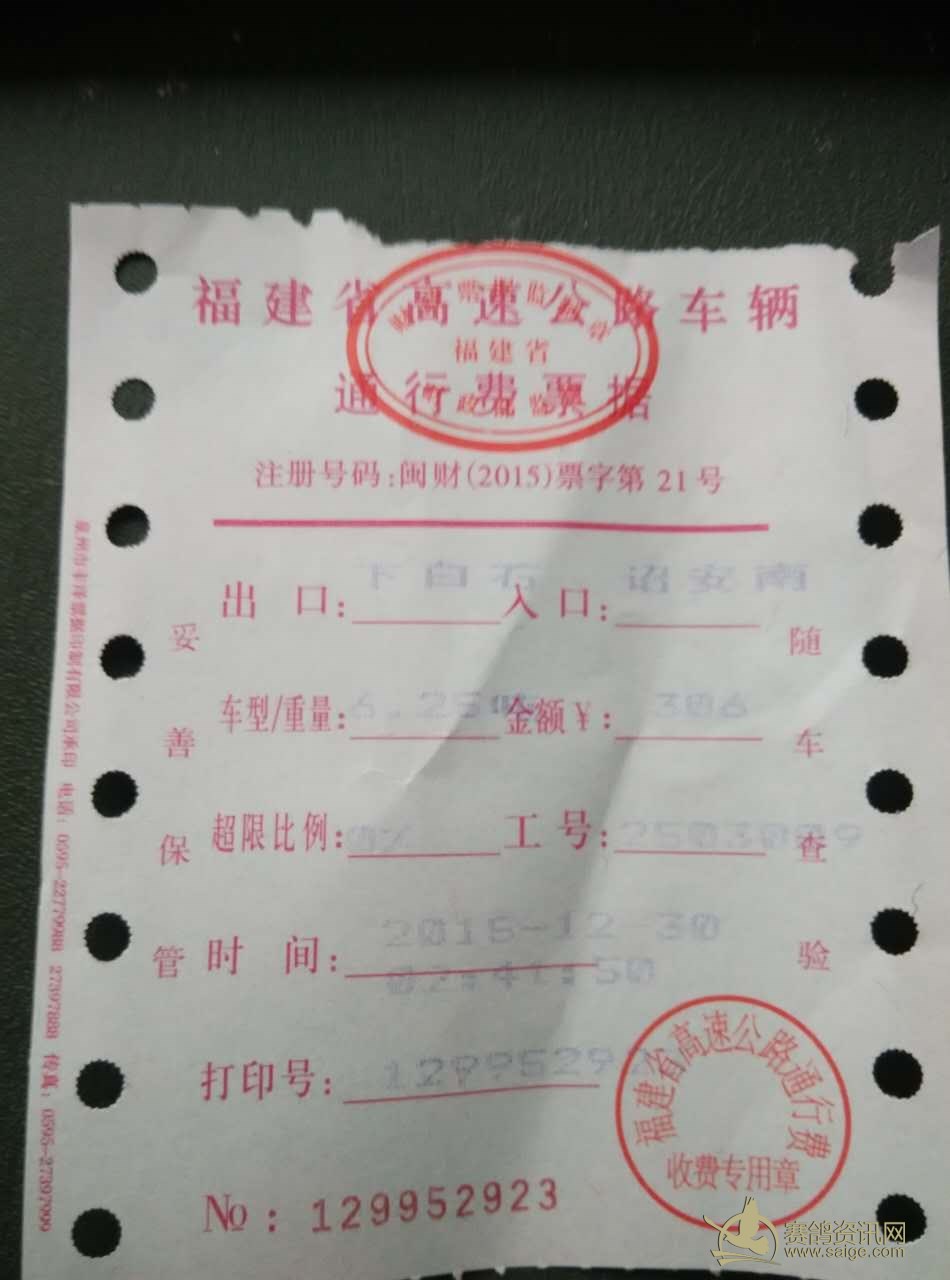 福建省高速公路车辆
通行费票据
福建省
注册号码:闽财(2015)票字第 21 号
出口: 下白石 入口: 诏安南
车型/重量: 6.25吨 金额¥: 306
超限比例: 0% 工号: 2503009
时间: 2015-12-30
02:41:50
打印号: 12995292
No: 129952923
妥善保管
随车查验
福建省高速公路通行费
收费专用章
电话: 0595-22779988 27397888 传真: 0595-27397999
赛鸽资讯网
www.saige.com